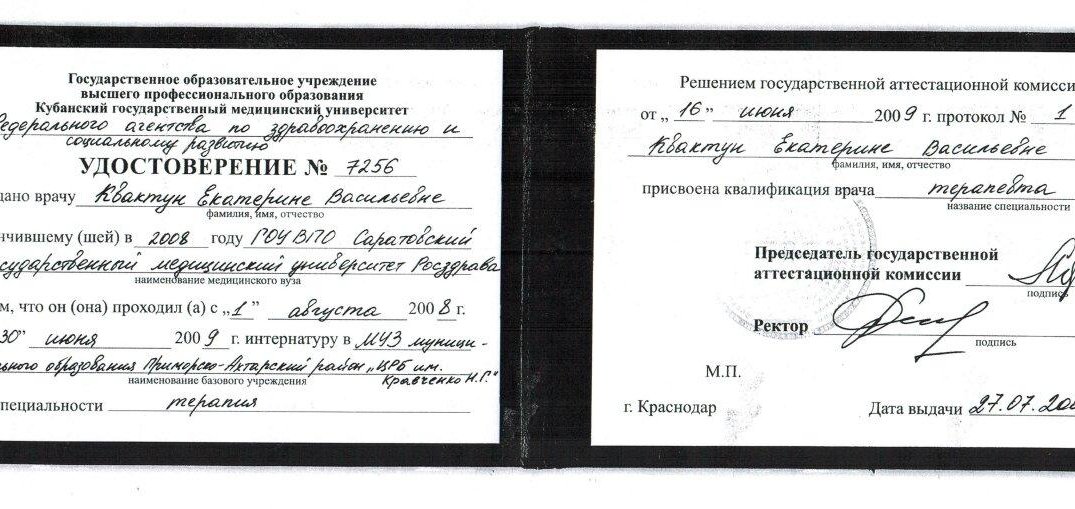 Государственное образовательное учреждение
высшего профессионального образования
Кубанский государственный медицинский университет
Федерального агентства по здравоохранению и
социальному развитию
УДОСТОВЕРЕНИЕ № 7256
дано врачу Квактун Екатерине Васильевне
фамилия, имя, отчество
нчившему (шей) в 2008 году ГОУ ВПО Саратовский
сударственный медицинский университет Росздрава
наименование медицинского вуза
м, что он (она) проходил (а) с „1” августа 2008 г.
30” июня 2009 г. интернатуру в МУЗ муници-
ьного образования Приморско-Ахтарский район „ЦРБ им.
Кравченко Н.Г."
наименование базового учреждения
пециальности терапия
Решением государственной аттестационной комисси
от „16” июня 2009 г. протокол № 1
Квактун Екатерине Васильевне
фамилия, имя, отчество
присвоена квалификация врача терапевта
название специальности
Председатель государственной
аттестационной комиссии
подпись
Ректор
подпись
М.П.
г. Краснодар Дата выдачи 27.07.200